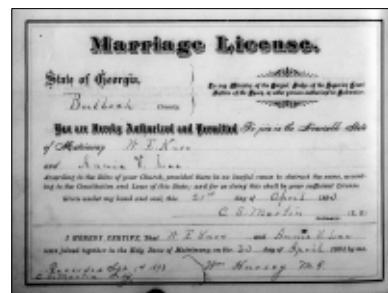 Marriage License.
State of Georgia,
Bulloch County.
To any Minister of the Gospel, Judge of the Superior Court
Justice of the Peace, or other person authorized to Solemnize.
You are Hereby Authorized and Permitted To join in the Honorable State
of Matrimony W E
and Annie V. Lee
According to the Rites of your Church, provided there be no lawful cause to obstruct the same, according
to the Constitution and Laws of this State; and for so doing this shall be your sufficient License.
Given under my hand and seal, this 21st day of April
C S Martin
Ordinary
I HEREBY CERTIFY, That W E and Annie V Lee
were joined together in the Holy Bans of Matrimony on the day of April by me.
Recorded 1st Wm Hursey M.G.
C S Martin